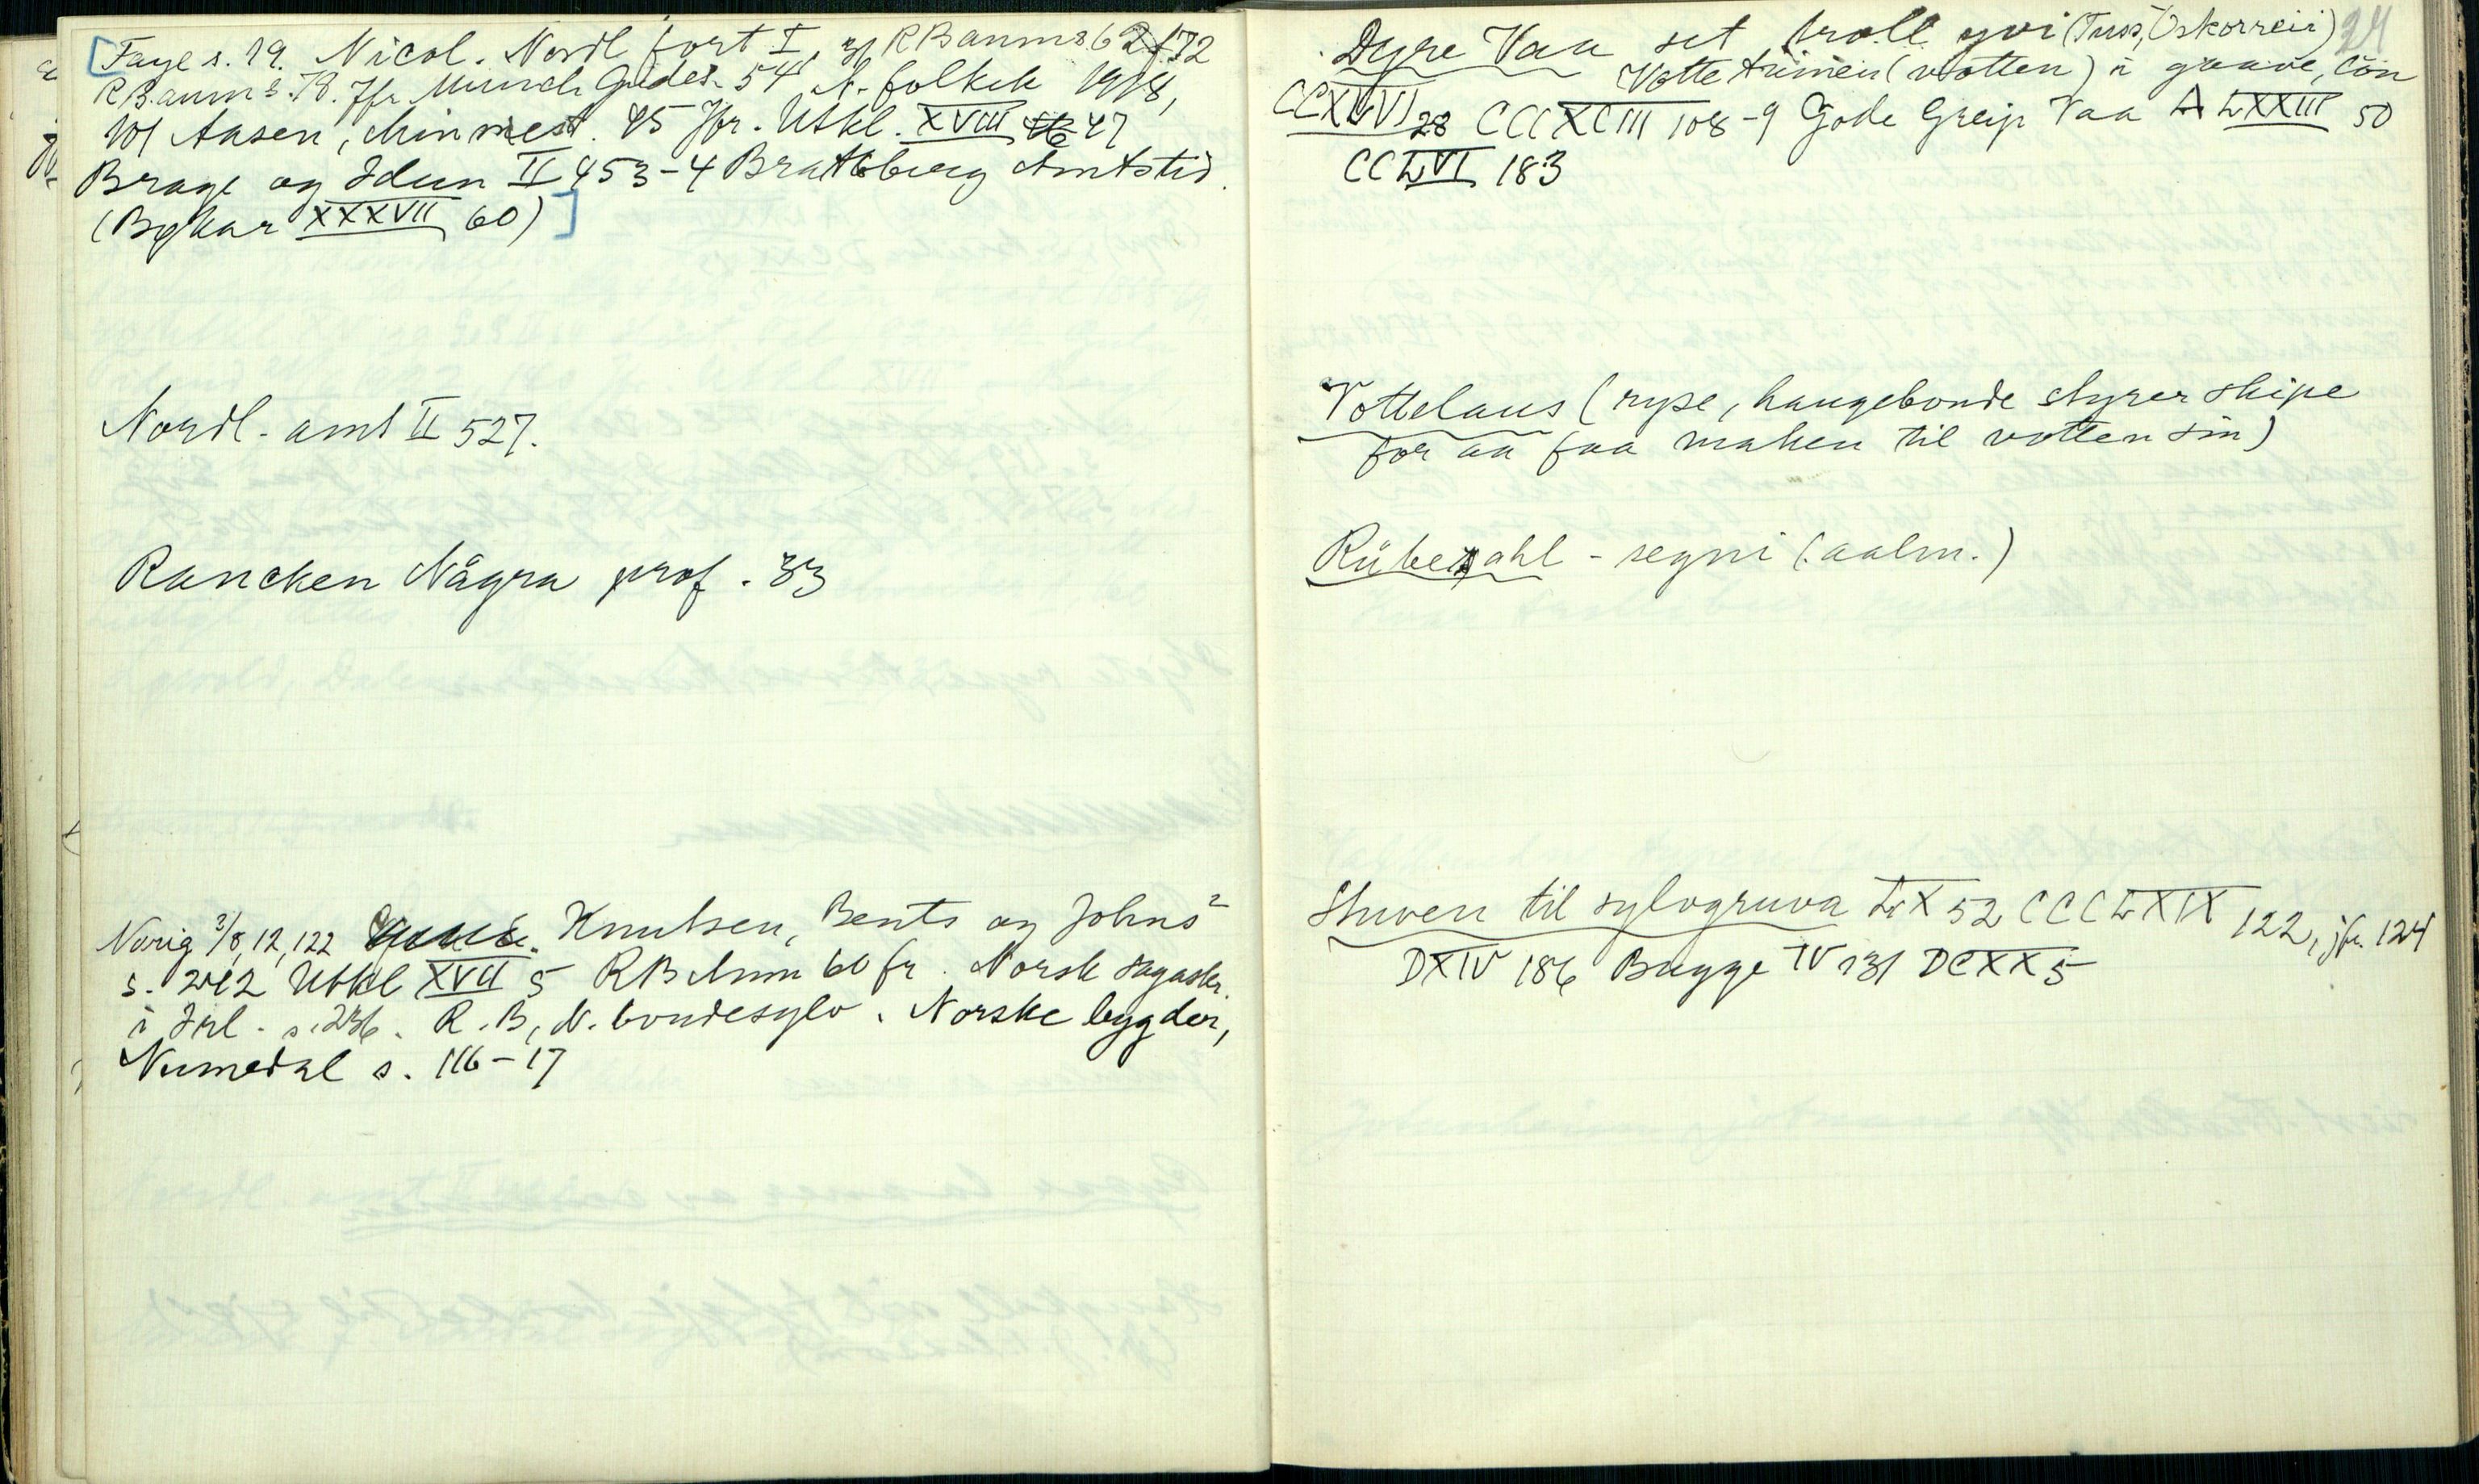 [Faye s. 19. Nicol. Nordl fort I, 31 RB anm s. 62 f. 72
RB. anm s. 78. Jfr. Munch Gudes. 54 N. folkek 1918,
101 Aasen, Min mest. 45 Jfr. Utkl. XVIII 47
Brage og Idun II 453-4 Bratsberg Amtstid.
(Bykar XXXVII 60)]
Nordl. amt II 527.
Rancken Några prof. 33
Norig 3/8, 12, 122 Knutsen, Bents og Johns
s. 242 Utkl XVII 5 RB Anm 60 fr. Norsk sogeskr.
i Irl. s. 236. R.B, N. bondesylv. Norske bygder,
Numedal s. 116-17
24
Dyre Vaa set troll yvi (Tuss, Oskorreii)
Votte trimen (votten) i gaave, lön
CCXLVI 28 CCCXCIII 108-9 Gode Greip Vaa LXXIII 50
CCLVI 183
Vottelaus (ryse, haugebonde styrer skipe
for aa faa maken til votten sin)
Rübezahl - segni (aalm.)
Stuven til sylvgruva LIX 52 CCCLXIX 122, jfr. 124
DXIV 186 Bugge IV 131 DCXX 5